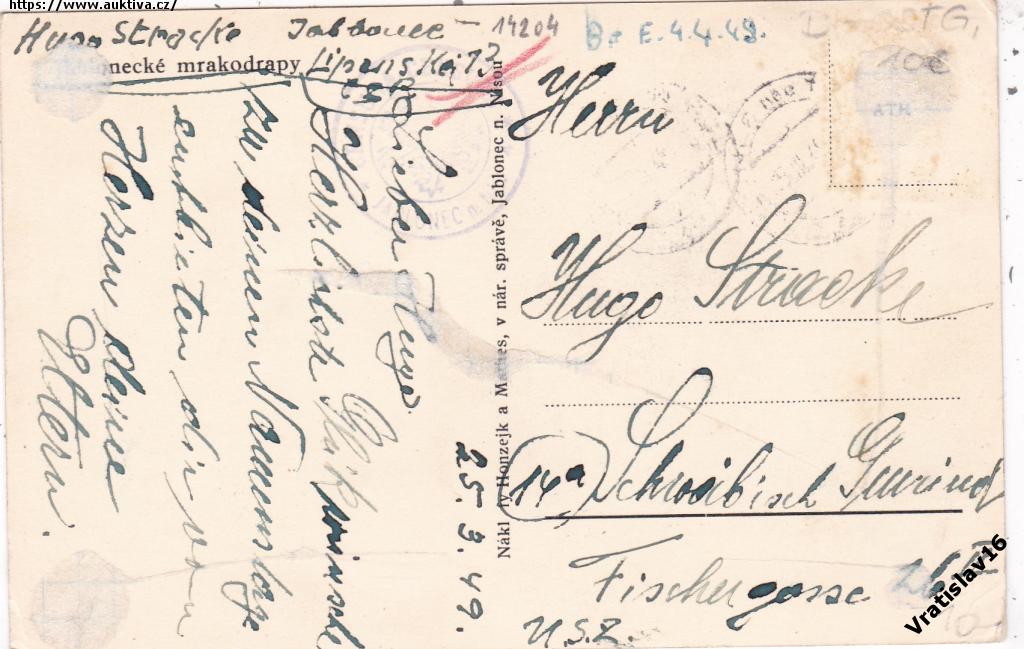 https://www.auktiva.cz/
Hugo Stracke Jablonec - 14204
Lipanská 13
necké mrakodrapy
Be E. 4.4.49.
STG,
10€
ATM
JABLONEC n.
25.3.49.
Lieber Hugo
Herzlichste Glückwünsche
zu deinem Namenstage
entbieten dir vom
Herzen deine
Eltern.
Nákl dy Honzejk a Ma es, v nár. správě, Jablonec n. Nisou
Herrn
Hugo Stracke
14a Schwäbisch Gmünd
Fischergasse
U.S.Z.
Vratislav16